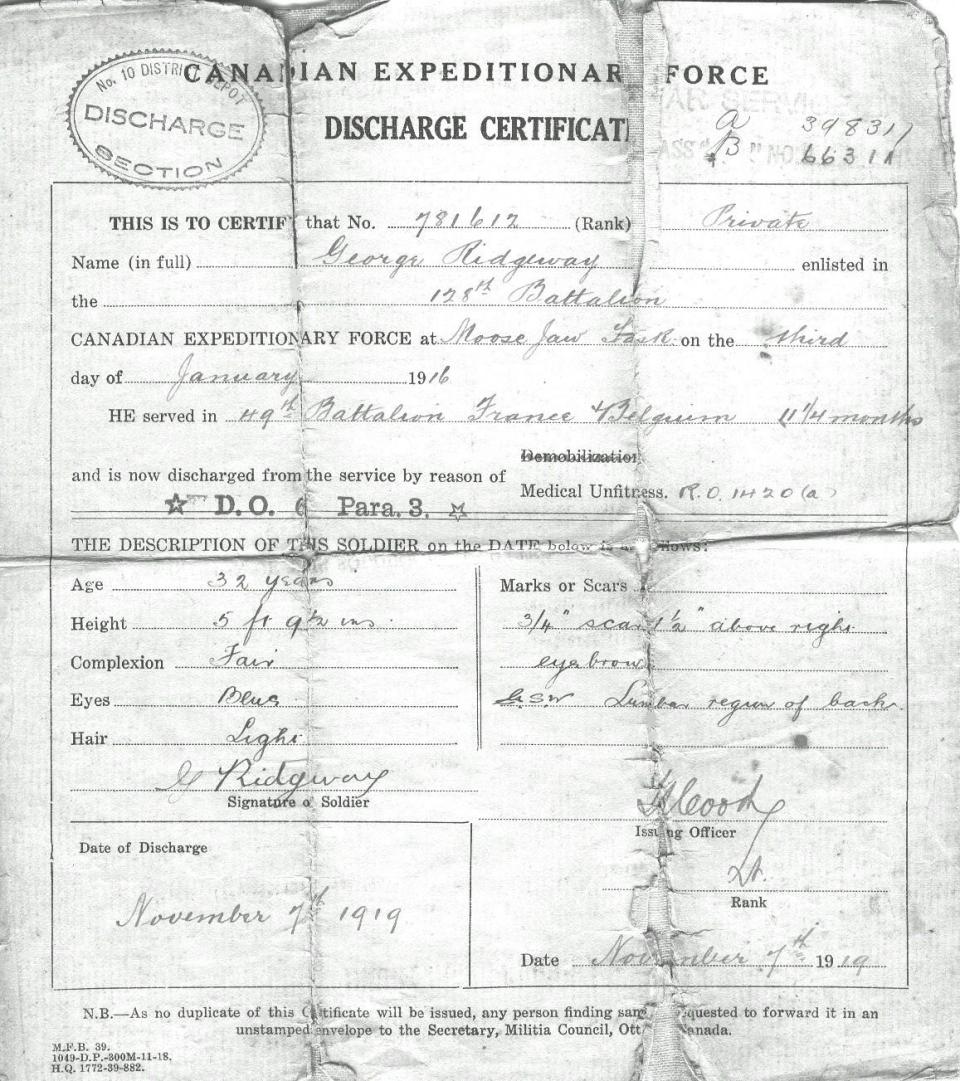 No. 10 DISTRICT DEPOT
DISCHARGE
SECTION
CANADIAN EXPEDITIONAR FORCE
DISCHARGE CERTIFICAT
WAR SERVI
A 39831
CLASS "B" NO. 66311
THIS IS TO CERTIF that No. 781612 (Rank) Private
Name (in full) George Ridgeway enlisted in
the 128th Battalion
CANADIAN EXPEDITIONARY FORCE at Moose Jaw Sask on the third
day of January 1916
HE served in 49th Battalion France & Belgium 11 1/4 months
Demobilization
and is now discharged from the service by reason of
Medical Unfitness. R.O. 1420 (a)
☆ D.O. 6 Para. 3. ☆
THE DESCRIPTION OF THIS SOLDIER on the DATE below is as follows:
Age 32 years
Height 5 ft 9½ ins.
Complexion Fair
Eyes Blue
Hair Light
Marks or Scars
3/4" scar 1½" above right
eyebrow
G.S.W Lumbar region of back
G Ridgeway
Signature of Soldier
Issuing Officer
Lt.
Rank
Date of Discharge
November 7th 1919
Date November 7th 1919
N.B.—As no duplicate of this Certificate will be issued, any person finding same requested to forward it in an
unstamped envelope to the Secretary, Militia Council, Ott Canada.
M.F.B. 39.
1049-D.P.-300M-11-18.
H.Q. 1772-39-882.